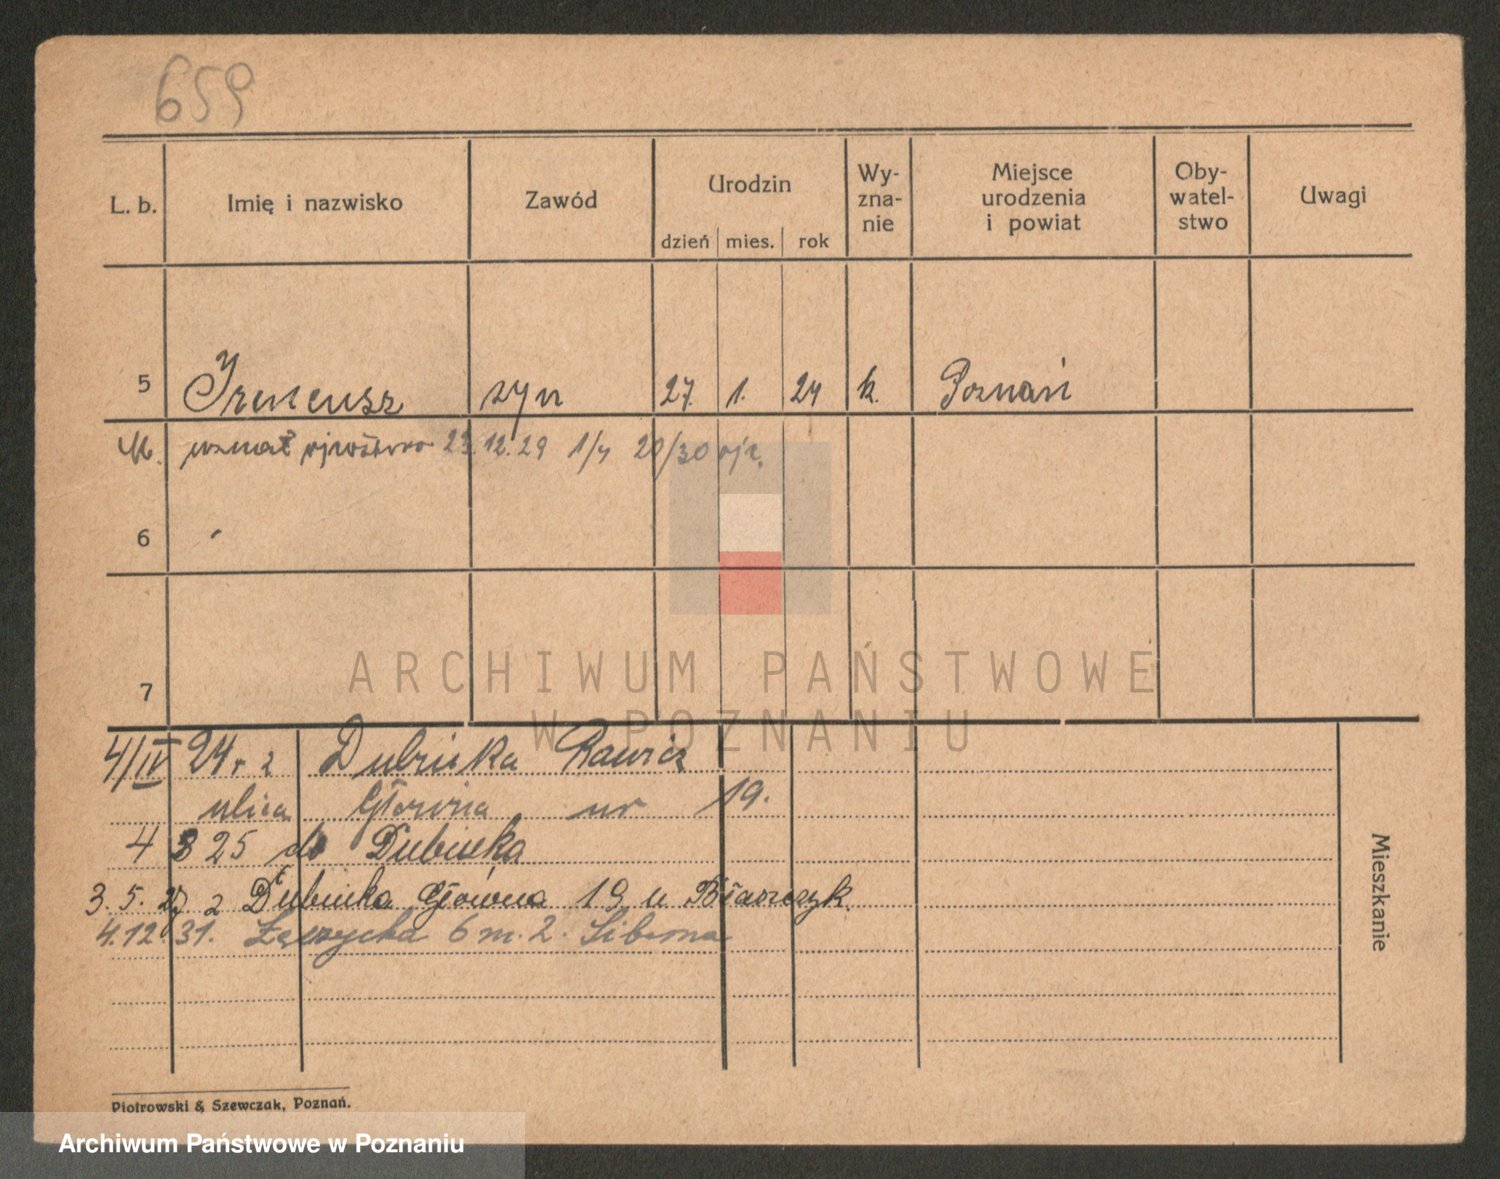 659
L. b. Imię i nazwisko Zawód Urodzin dzień mies. rok Wy-zna-nie Miejsce urodzenia i powiat Oby-watel-stwo Uwagi
5 Ireneusz syn 27. 1. 24 k. Poznań
uznał ojcostwo 23.12.29 1/4 20/30
6
7
ARCHIWUM PAŃSTWOWE
W POZNANIU
4/IV 24 r z Dubinka Rawicz
ulica Główna nr 19.
4 8 25 do Dubinka
3. 5. 27 z Dubinka Główna 19 u Błaszczyk.
4.12.31. Łęczycka 6 m. 2.
Mieszkanie
Piotrowski & Szewczak, Poznań.
Archiwum Państwowe w Poznaniu